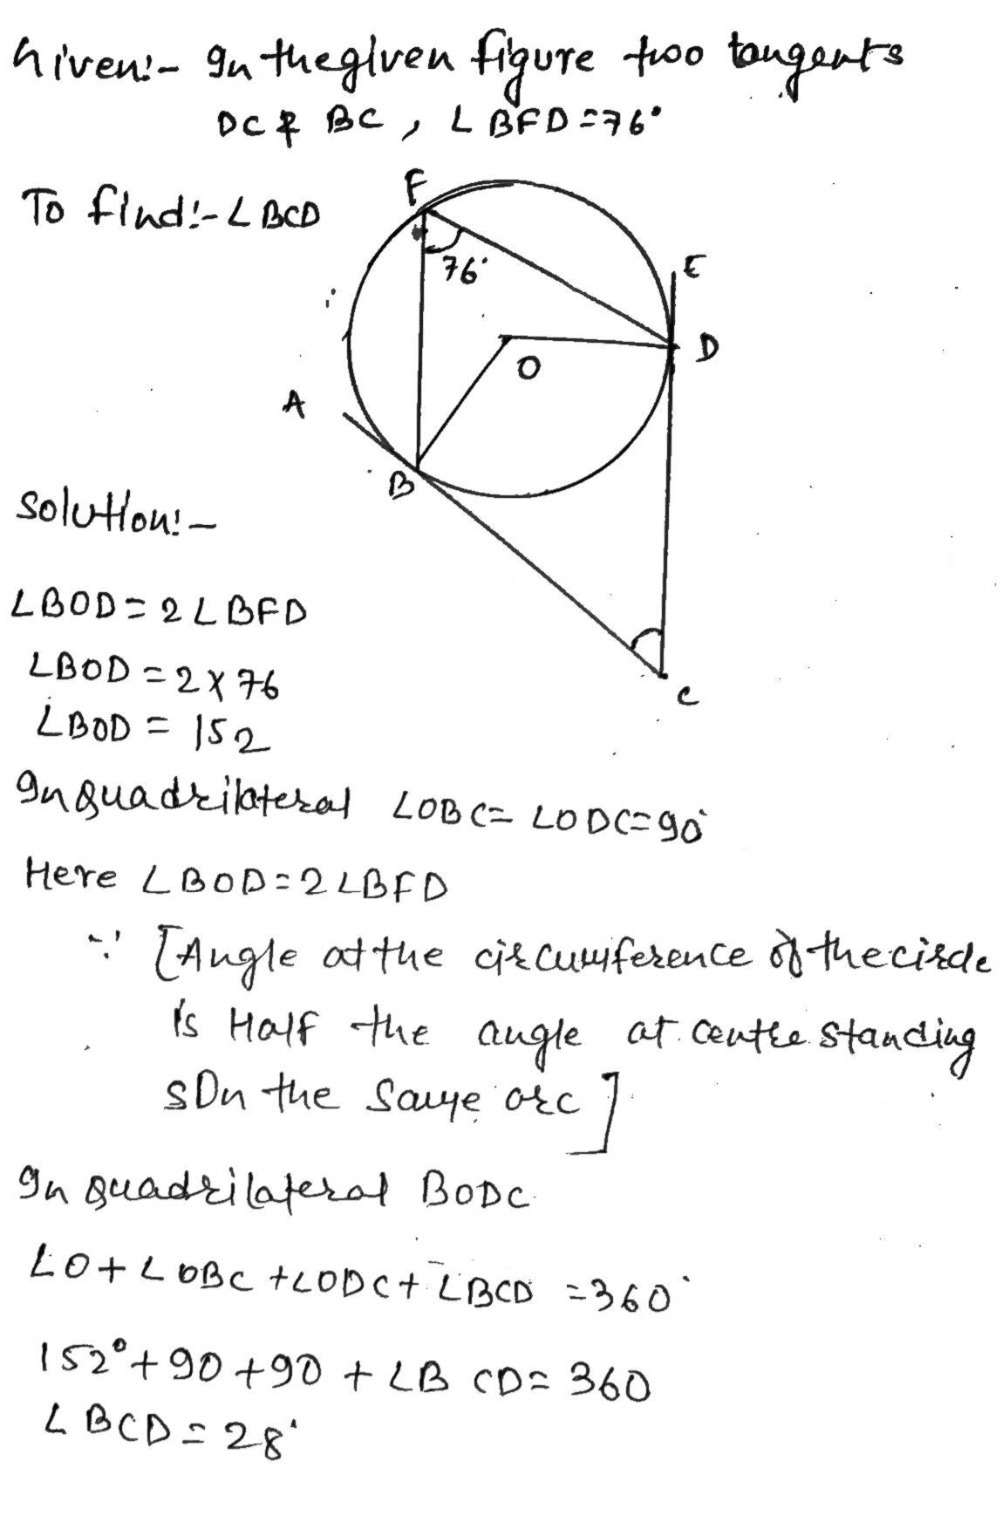 Given:- In the given figure two tangents
DC & BC, ∠BFD=76°
To find:-∠BCD
F
76°
E
D
O
A
B
C
Solution:-
∠BOD=2∠BFD
∠BOD=2×76
∠BOD=152
In quadrilateral ∠OBC=∠ODC=90°
Here ∠BOD=2∠BFD
∵ [Angle at the circumference of the circle
is Half the angle at centre standing
sOn the Same arc]
In quadrilateral BODC
∠O+∠OBC+∠ODC+∠BCD=360°
152°+90+90+∠BCD=360
∠BCD=28°